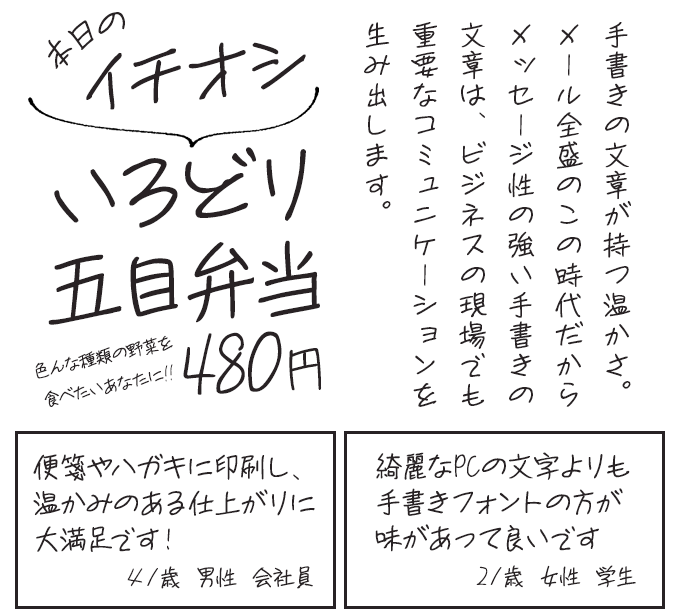 本日の
イチオシ
いろどり
五目弁当
色んな種類の野菜を
食べたいあなたに!!
480円
手書きの文章が持つ温かさ。
メール全盛のこの時代だから
メッセージ性の強い手書きの
文章は、ビジネスの現場でも
重要なコミュニケーションを
生み出します。
便箋やハガキに印刷し、
温かみのある仕上がりに
大満足です!
41歳 男性 会社員
綺麗なPCの文字よりも
手書きフォントの方が
味があって良いです
21歳 女性 学生